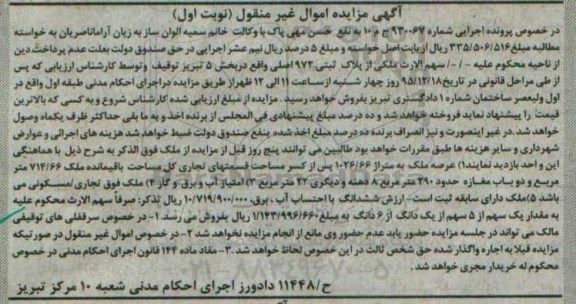 آگهی مزایده اموال غیر منقول (نوبت اول)
در خصوص پرونده اجرایی شماره ۹۳۰۰۶۷ ج م ۱۰ به نفع حسن مهی پاک با وکالت خانم سمیه الوان ساز به زیان آراماناصریان به خواسته
مطالبه مبلغ ۳۳۵/۵۰۶/۵۱۶ ریال از بابت اصل خواسته و مبلغ ۵ درصد ریال نیم عشر اجرایی در حق صندوق دولت بعلت عدم پرداخت دین
از ناحیه محکوم علیه -/-/ سهم الارث ملکی از پلاک ثبتی ۹۷۳ اصلی واقع در بخش ۵ تبریز توقیف و توسط کارشناس ارزیابی که پس
از طی مراحل قانونی در تاریخ ۹۵/۱۲/۱۸ روز چهار شنبه از ساعت ۱۱ الی ۱۲ ظهر از طریق مزایده در اجرای احکام مدنی طبقه اول واقع در
اول ولیعصر ساختمان شماره ۱ دادگستری تبریز بفروش خواهد رسید. مزایده از مبلغ ارزیابی شده کارشناس شروع و به کسی که بالاترین
قیمت را پیشنهاد نماید فروخته خواهد شد و ده درصد مبلغ پیشنهادی فی المجلس از برنده اخذ و به ما بقی حداکثر ظرف یکماه وصول
خواهد شد. در غیر اینصورت و نیز انصراف برنده ده درصد مبلغ اخذ شده بنفع صندوق دولت ضبط خواهد شد هزینه های اجرائی و عوارض
شهرداری و سایر هزینه ها طبق مقررات خواهد بود طالبین می توانند پنج روز قبل از مزایده از ملک فوق الذکر به شرح ذیل با هماهنگی
این واحد بازدید نمایند ۱) عرصه ملک به متراژ ۱۰۲۶/۶۶ پس از کسر مساحت قسمتهای تجاری کل مساحت باقیمانده ملک ۷۱۴/۶۶ متر
مربع و دو باب مغازه حدود ۲۹۰ متر مربع ۸ دهنه و دیگری ۲۲ متر مربع ۳) امتیاز آب و برق و گاز ۴) ملک فوق تجاری/مسکونی می
باشد ۵) ملک دارای سابقه ثبت است- ارزش ششدانگ با احتساب آب، برق، ۱۰/۷۱۹/۹۰۰/۰۰۰ ریال تذکر: صرفاً سهم الارث محکوم علیه
به مقدار یک سهم از ۵ سهم از یک دانگ از ۶ دانگ به مبلغ ۱/۱۴۳/۹۹۶/۶۶۰ ریال بفروش می رسد. ۱- در خصوص سرقفلی های توقیفی
مالک می تواند در جلسه مزایده حضور یابد عدم حضور وی مانع از انجام مزایده نخواهد شد ۲- در خصوص اموال غیر منقول در صورتیکه
مزایده قبلا به اجاره واگذار شده حق شخص ثالث در این خصوص لحاظ خواهد شد. ۳- مفاد ماده ۱۴۴ قانون اجرای احکام مدنی در خصوص
محکوم له خریدار مجری خواهد شد.
ح/۱۱۴۴۸ دادورز اجرای احکام مدنی شعبه ۱۰ مرکز تبریز